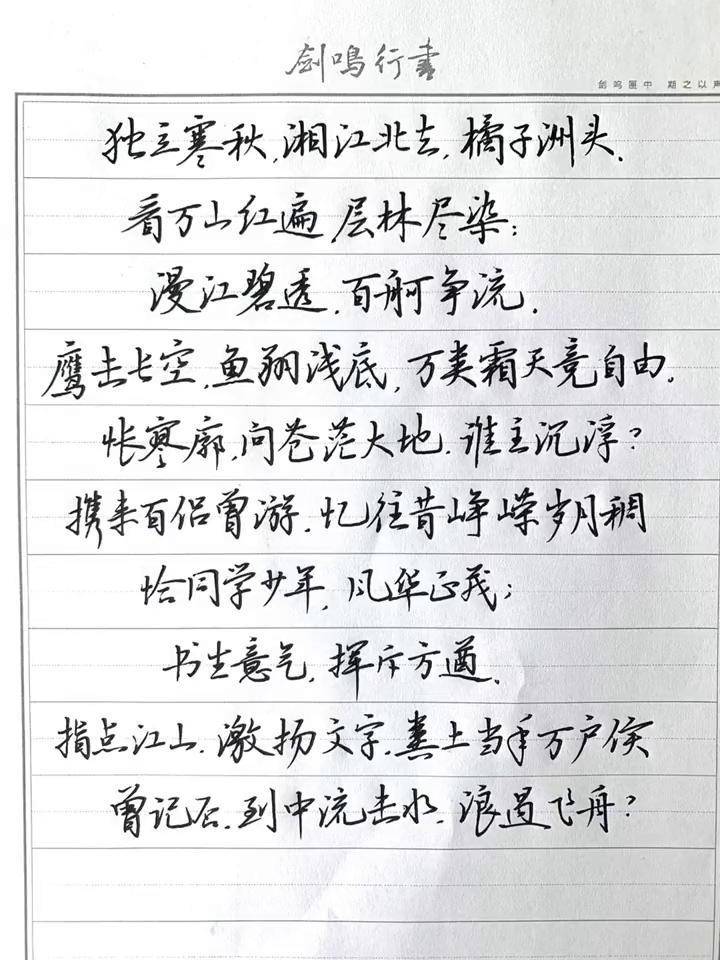 剑鸣行书
剑鸣匣中 期之以声
独立寒秋,湘江北去,橘子洲头.
看万山红遍,层林尽染;
漫江碧透,百舸争流.
鹰击长空,鱼翔浅底,万类霜天竞自由.
怅寥廓,问苍茫大地.谁主沉浮?
携来百侣曾游.忆往昔峥嵘岁月稠
恰同学少年,风华正茂;
书生意气,挥斥方遒.
指点江山.激扬文字.粪土当年万户侯
曾记否.到中流击水.浪遏飞舟?